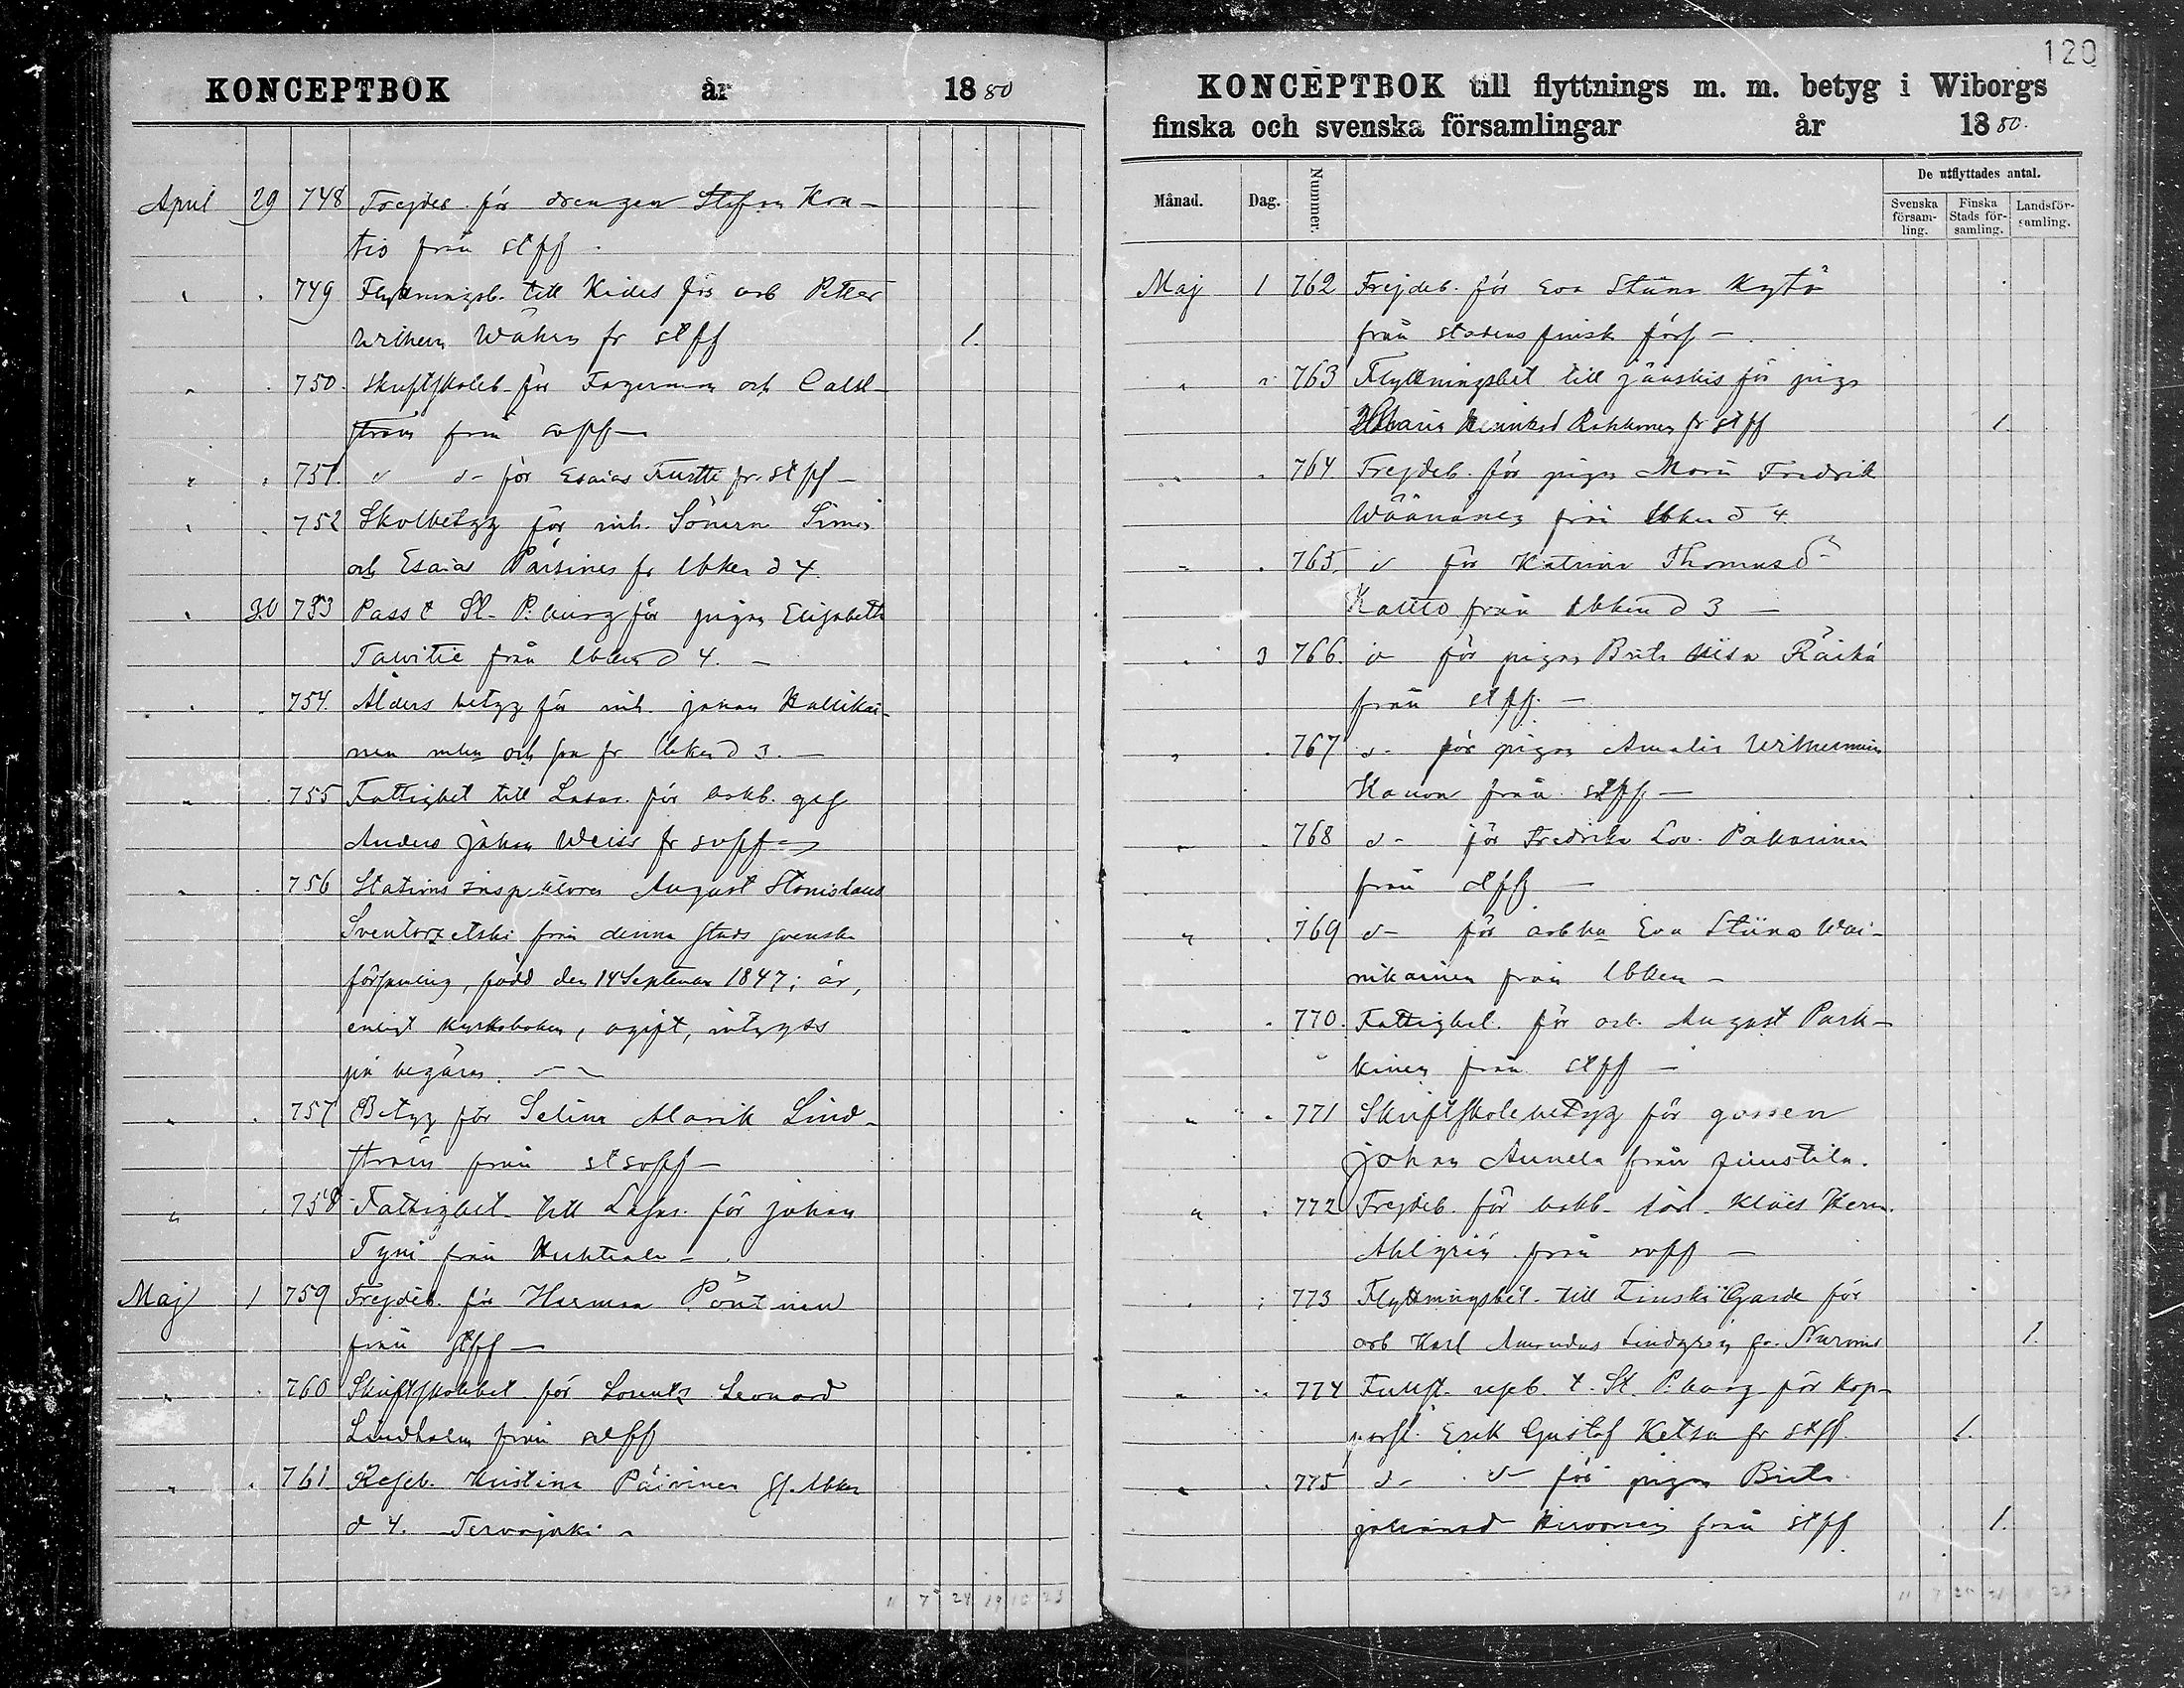 KONCEPTBOK år 1880
April 29 748 Frejdeb. för drengen Stefan Kon-
tio från stff.
749 Flyttningsb. till Kides för arb Petter
Wilhem Wähen fr stff 1.
750. Skriftskoleb. för Fagerman och Calsl-
ström från svff
751. d d- för Esaias Turtti fr. stff
752 Skolbetyg för inh. Sönern Simo
och Esaias Pärsinen fr lbken d 4.
30 753 Pass t St. P.burg för pigan Elisabeth
Talvitie från lbken d 4.
754. Ålders betyg för inh. johan Kallikai-
nen och fr lbken d 3.
755 Fattigbet till Lasar. för
Anders Johan Weiss fr svff
756 Stations inspektoren August Stanislaus
Sventorzetski från denna stads svenska
församling, född den 14 September 1847; är,
enligt kyrkoboken, ogift, intygas
på begäran.
757 Betyg för Selina Alarik Lind-
ström från stsvff
758 Fattigbet. till Lasar. för johan
Tyni från Huhtiala
Maj 1 759 Frejdeb. för Herman Pöntinen
från stff
760 Skriftskolbet för Lorentz Leonard
Lindholm från
761. Reseb. Kristina Päivinen lbken
d 4. Tervajoki
11 7 24 19 10 23
120
KONCEPTBOK till flyttnings m. m. betyg i Wiborgs
finska och svenska församlingar år 1880.
Månad. Dag. Nummer. De utflyttades antal.
Svenska försam-ling. Finska Stads för-samling. Landsför-samling.
Maj 1 762 Frejdeb. för Eva Stina Kytö
från stadens finsk förs
763 Flyttningsbet till jääskis för piga
Maria Henriksd Rahkonen fr stff 1.
764. Frejdeb. för pigan Maria Fredrik
Wäänänen från lbken d 4.
765. d för Katrina Thomasd
Kautto från lbken d 3
3 766. d för pigan Brita Lisa Räihä
från stff.
767 d- för pigan Amalia Wilhelmina
från stff.
768 d- för Fredrika Lov. Pakarinen
från stff
769 d- för Eva Stina Wai-
nikainen från lbken
770. Fattigbet. för arb. August Park-
kinen från stff
771 Skriftskolebetyg för gossen
Johan Annela från Juustila.
772 Frejdeb. för bokh. Karl Klaes Herm.
Ahlgrén från svff
773 Flyttningsbet. till Finska Garde för
arb Karl Amandus Lindgren fr. Nurmi 1.
774 reseb. t. St. P.burg för kop-
parsl. Erik Gustaf Ketsu fr stff. 1.
775 d- d- för pigan Brita
johansd Hirvonen från stff 1.